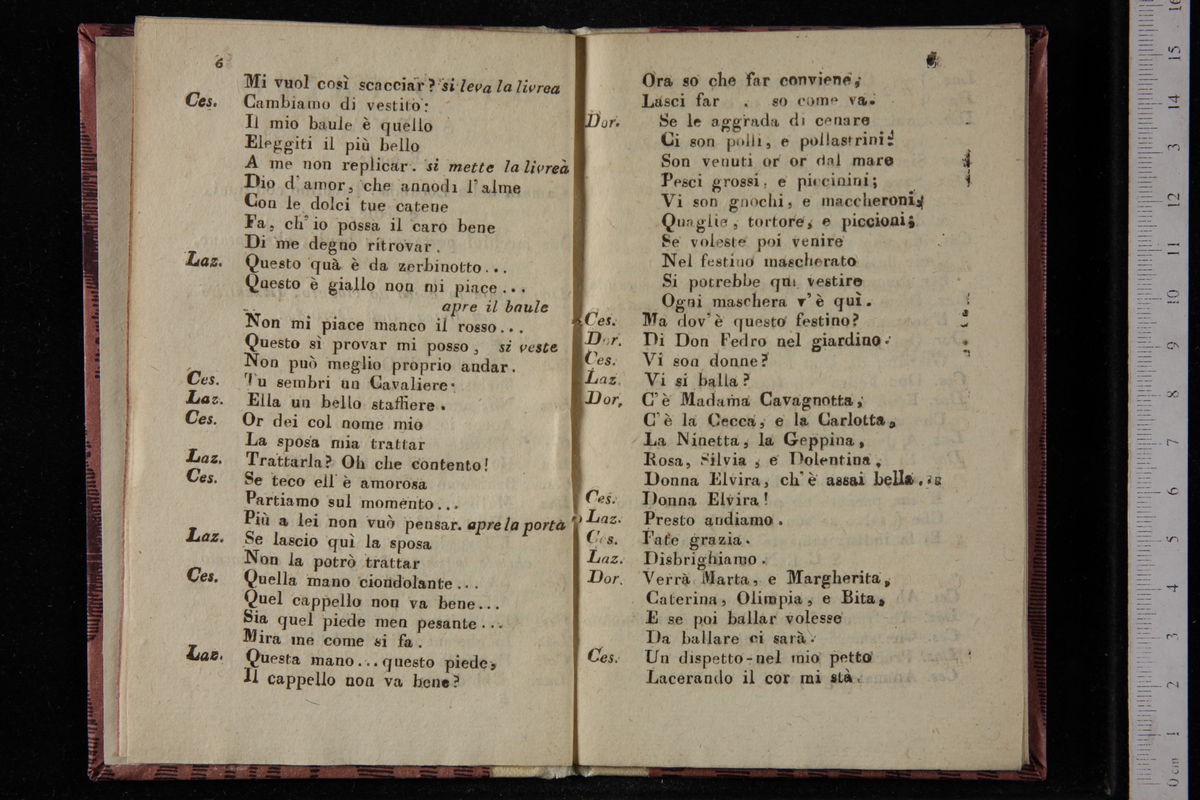 6
Mi vuol così scacciar? si leva la livrea
Ces. Cambiamo di vestito:
Il mio baule è quello
Eleggiti il più bello
A me non replicar. si mette la livrea
Dio d'amor, che annodi l'alme
Con le dolci tue catene
Fa, ch'io possa il caro bene
Di me degno ritrovar.
Laz. Questo quà è da zerbinotto...
Questo è giallo non mi piace...
apre il baule
Non mi piace manco il rosso...
Questo sì provar mi posso, si veste
Non può meglio proprio andar.
Ces. Tu sembri un Cavaliere.
Laz. Ella un bello staffiere.
Ces. Or dei col nome mio
La sposa mia trattar
Laz. Trattarla? Oh che contento!
Ces. Se teco ell'è amorosa
Partiamo sul momento...
Più a lei non vuò pensar. apre la porta
Laz. Se lascio quì la sposa
Non la potrò trattar
Ces. Quella mano ciondolante...
Quel cappello non va bene...
Sia quel piede men pesante...
Mira me come si fa.
Laz. Questa mano...questo piede,
Il cappello non va bene?
Ora so che far conviene,
Lasci far . so come va.
Dor. Se le aggrada di cenare
Ci son polli, e pollastrini:
Son venuti or or dal mare
Pesci grossi, e piccinini;
Vi son gnochi, e maccheroni,
Quaglie, tortore, e piccioni;
Se voleste poi venire
Nel festino mascherato
Si potrebbe qui vestire
Ogni maschera v'è quì.
Ces. Ma dov'è questo festino?
Dor. Di Don Pedro nel giardino.
Ces. Vi son donne?
Laz. Vi si balla?
Dor. C'è Madama Cavagnotta,
C'è la Cecca, e la Carlotta,
La Ninetta, la Geppina,
Rosa, Silvia, e Dolentina,
Donna Elvira, ch'è assai bella.
Ces. Donna Elvira!
Laz. Presto andiamo.
Ces. Fate grazia.
Laz. Disbrighiamo.
Dor. Verrà Marta, e Margherita,
Caterina, Olimpia, e Bita,
E se poi ballar volesse
Da ballare ci sarà.
Ces. Un dispetto-nel mio petto
Lacerando il cor mi stà.
0 cm 1 2 3 4 5 6 7 8 9 10 11 12 3 14 15 16